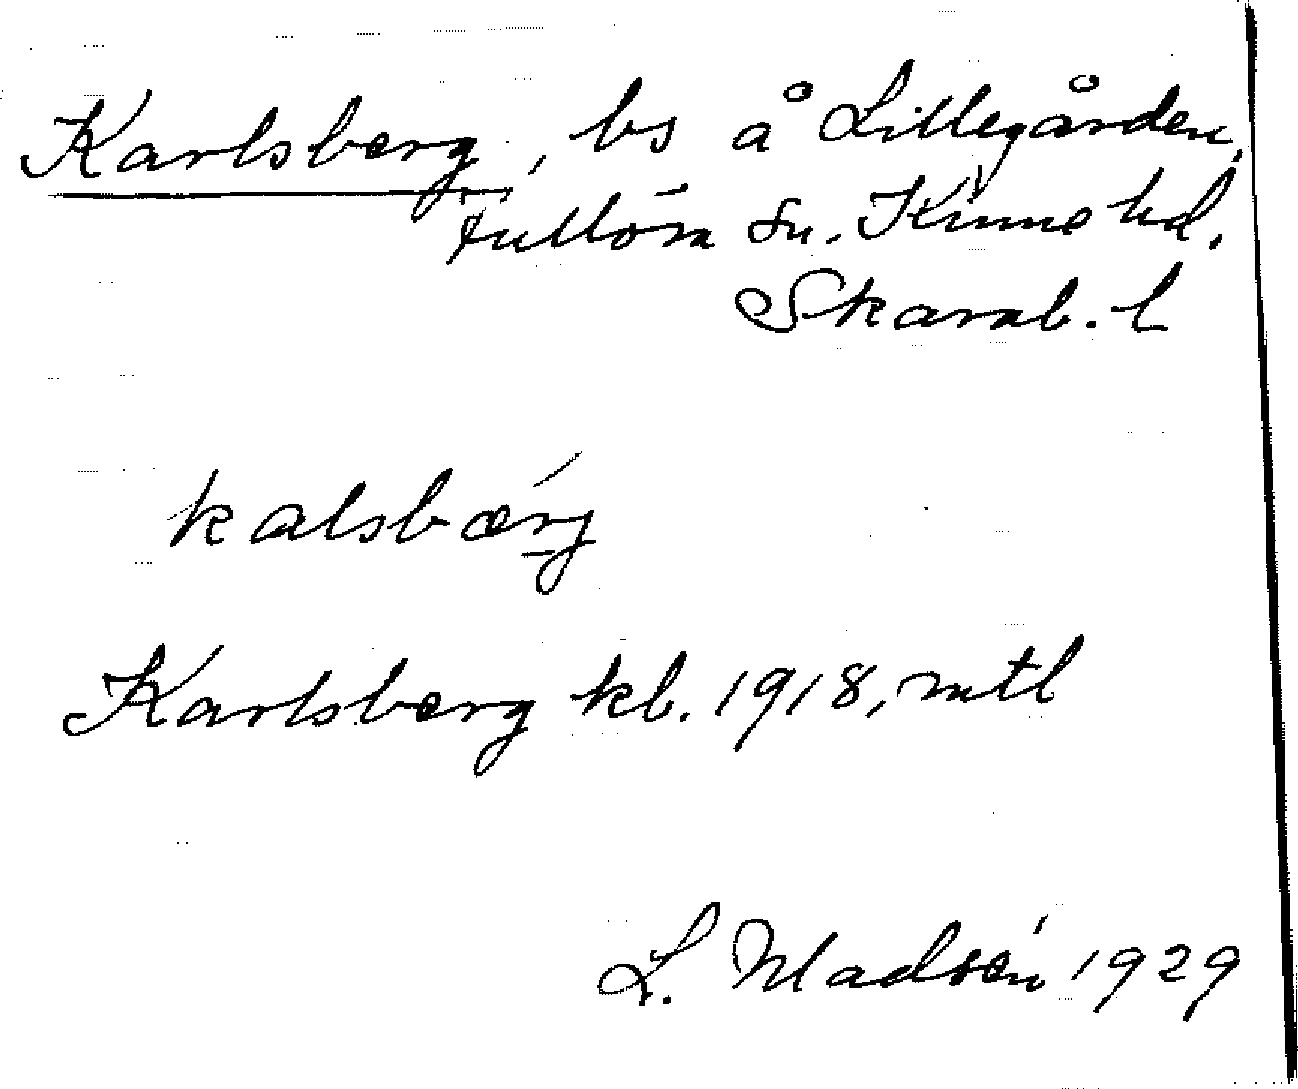 Karlsberg, bs å Lillegården,
Fullösa sn. Kinne hd,
Skarab. l
kalsbærj
Karlsberg kb. 1918, mtl
L. Madsén 1929